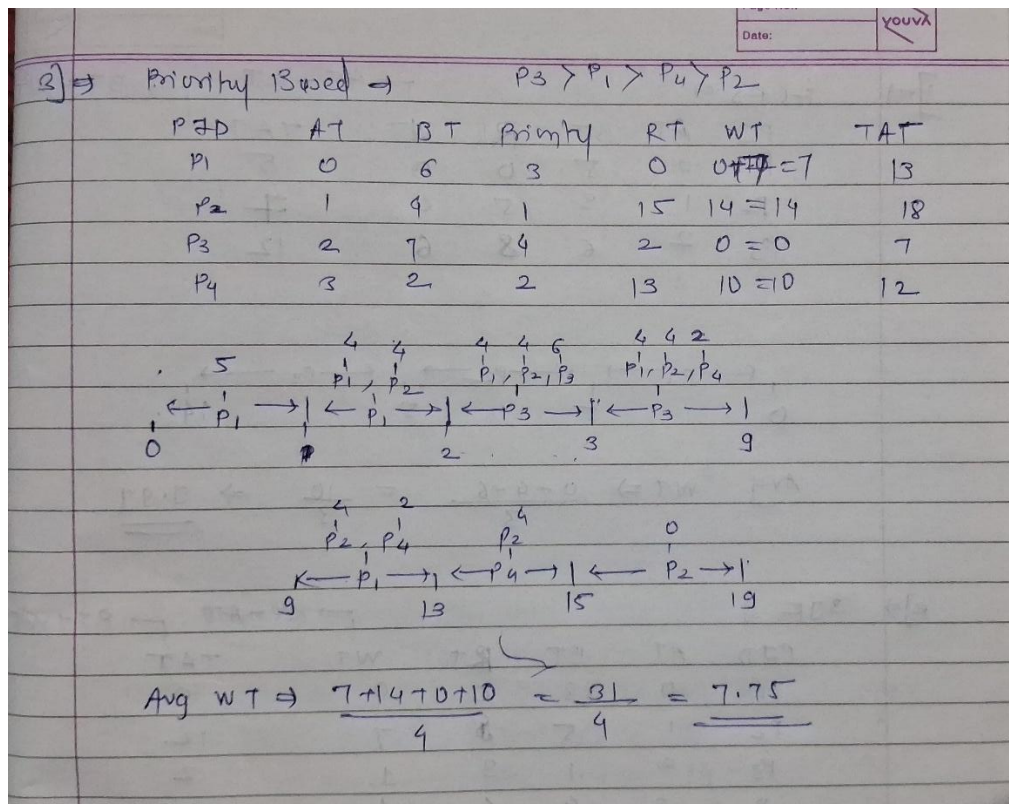 Page No.:
Date:
YOUVA
3] ⇒ Priority Based ⇒ P3 > P1 > P4 > P2
PID AT BT Priority RT WT TAT
P1 0 6 3 0 =7 13
P2 1 4 1 15 14 = 14 18
P3 2 7 4 2 0 = 0 7
P4 3 2 2 13 10 = 10 12
5 4 4 4 4 6 4 4 2
P1, P2 P1, P2, P3 P1, P2, P4
← P1 → | ← P1 → | ← P3 → | ← P3 → |
0 2 3 9
4 2 4 0
P2, P4 P2
← P1 → ← P4 → | ← P2 → |
9 13 15 19
Avg WT ⇒ 7+14+0+10 = 31 = 7.75
4 4